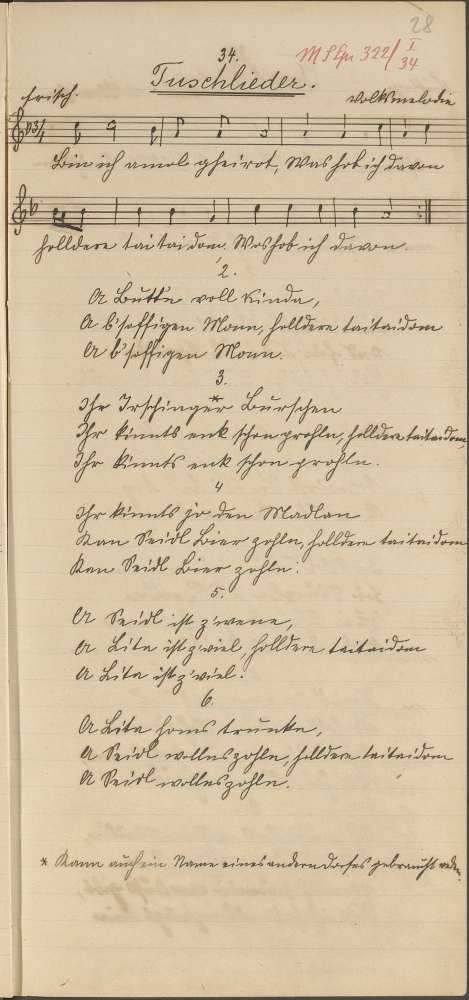 28
34.
MSSpr 322/I 34
Tuschlieder.
frisch.
Volksmelodie
Bin ich amol gheirot, Was hob ich davon
holldere taitaidom. Was hob ich davon.
2.
A Buttn voll Kinda,
A b'soffigen Monn, holldere taitaidom
A b'soffigen Monn.
3.
Ihr Irschinger* Burschen
Ihr kinnts enk schon prohln, holldere taitaidom,
Ihr kinnts enk schon prohln.
4
Ihr kinnts jo den Madlan
Kan Seidl Bier zohln, holldere taitaidom
Kan Seidl Bier zohln.
5.
A Seidl ist z'wene,
A Lita ist z'viel, holldere taitaidom
A Lita ist z'viel.
6.
A Lita homs trunke,
A Seidl wollns zohln, holldere taitaidom
A Seidl wollns zohln.
* Kann auch ein Name eines andern Dorfes gebraucht werden.